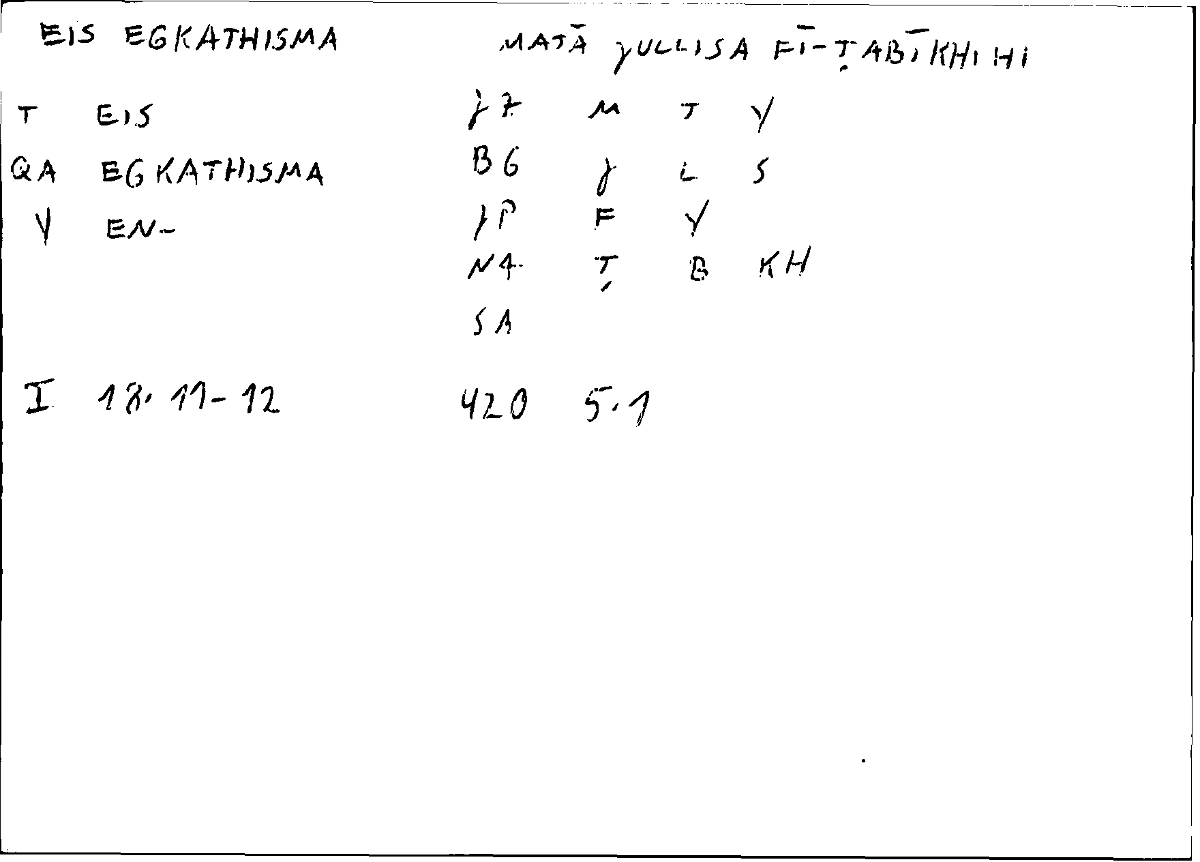 EIS EGKATHISMA MATĀ JULLISA FĪ-ṬABĪKHIHI
T EIS JZ M T Y
QA EGKATHISMA BG J L S
V EN- JP F Y
NA Ṭ B KH
SA
I 18.11-12 420 5.1